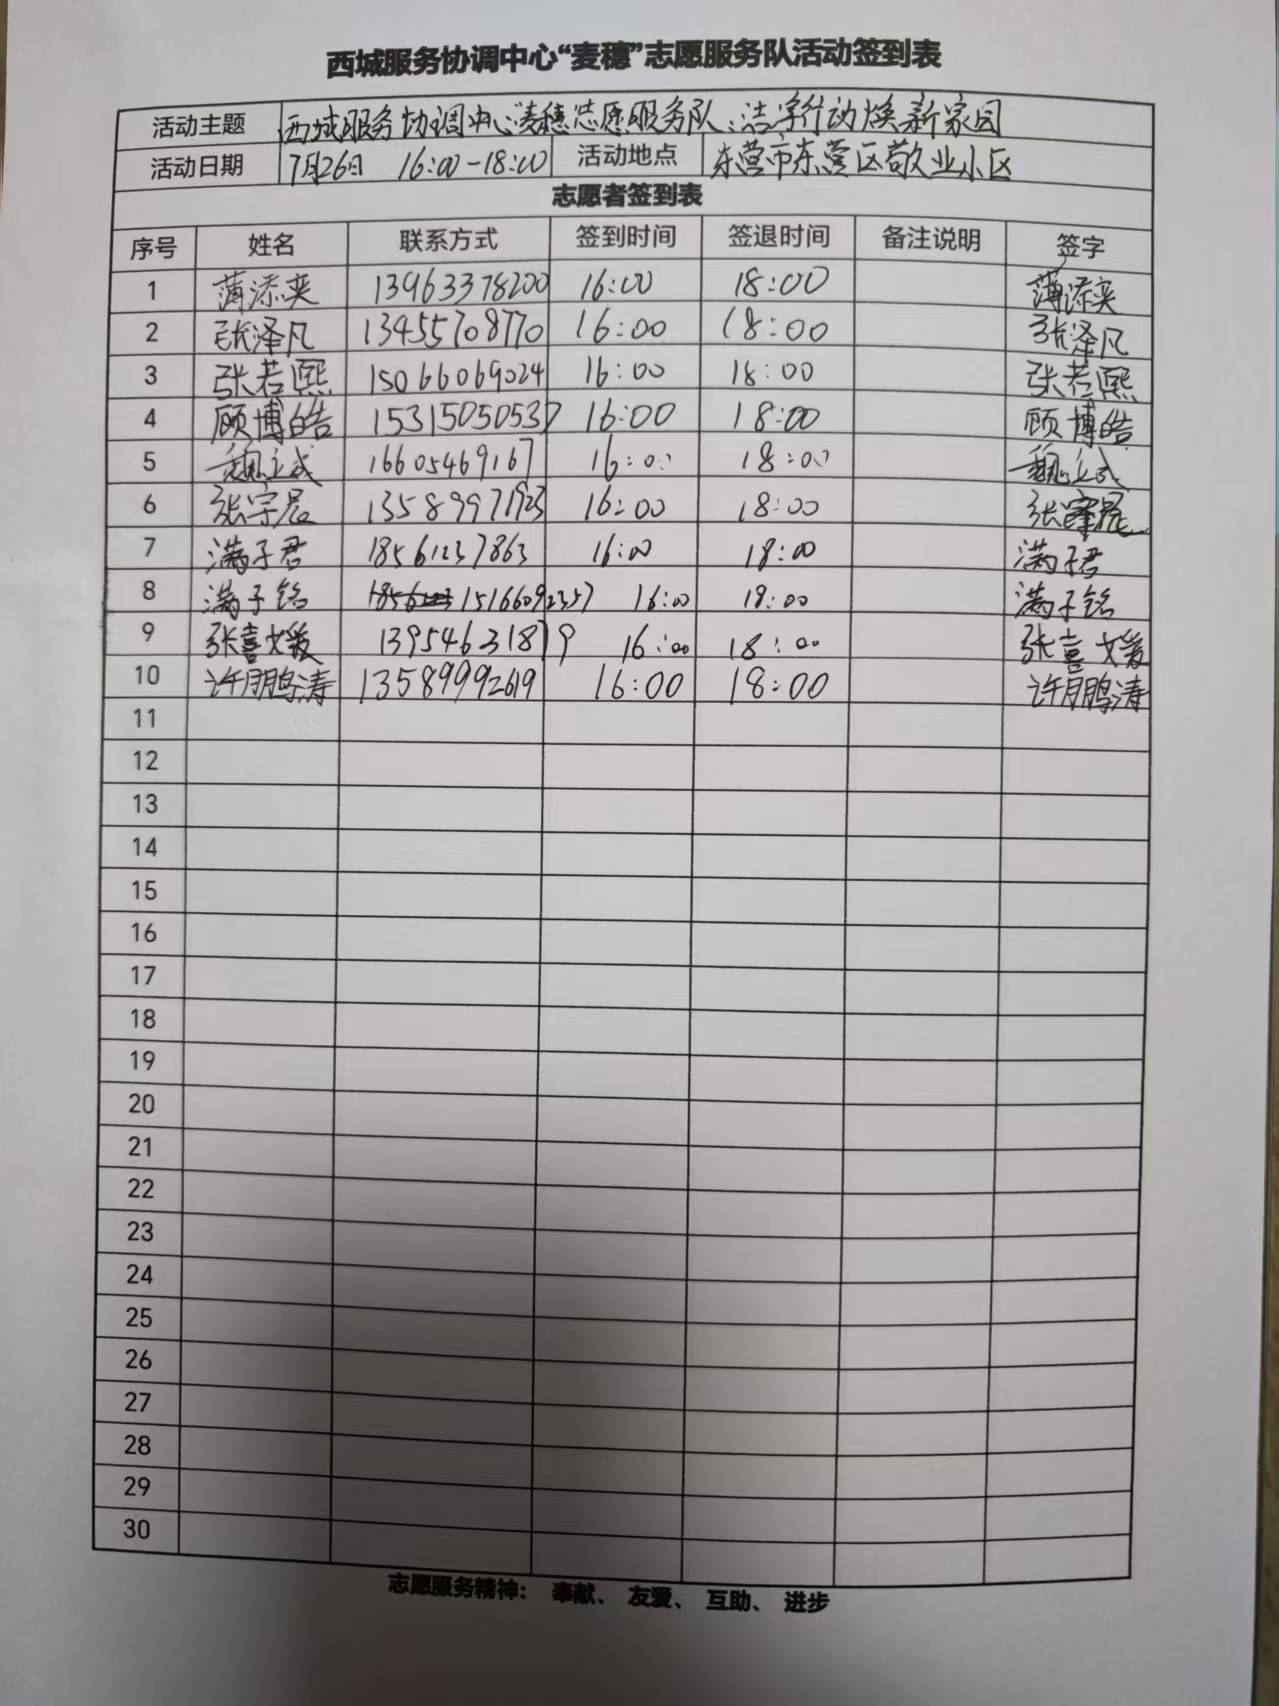 西城服务协调中心“麦穗”志愿服务队活动签到表
活动主题 西城服务协调中心“麦穗”志愿服务队:洁净行动焕新家园
活动日期 7月26日 16:00-18:00 活动地点 东营市东营区敬业小区
志愿者签到表
序号 姓名 联系方式 签到时间 签退时间 备注说明 签字
1 薄添奕 13963378200 16:00 18:00 薄添奕
2 张泽凡 13455708770 16:00 18:00 张泽凡
3 张若熙 15066069024 16:00 18:00 张若熙
4 顾博皓 15315050537 16:00 18:00 顾博皓
5 魏立成 16605469167 16:00 18:00 魏立成
6 张宗辰 13589971923 16:00 18:00 张宗辰
7 满子君 18561237863 16:00 18:00 满子君
8 满子铭 15166092357 16:00 18:00 满子铭
9 张喜媛 13954631879 16:00 18:00 张喜媛
10 许鹏涛 13589992619 16:00 18:00 许鹏涛
11
12
13
14
15
16
17
18
19
20
21
22
23
24
25
26
27
28
29
30
志愿服务精神: 奉献、 友爱、 互助、 进步